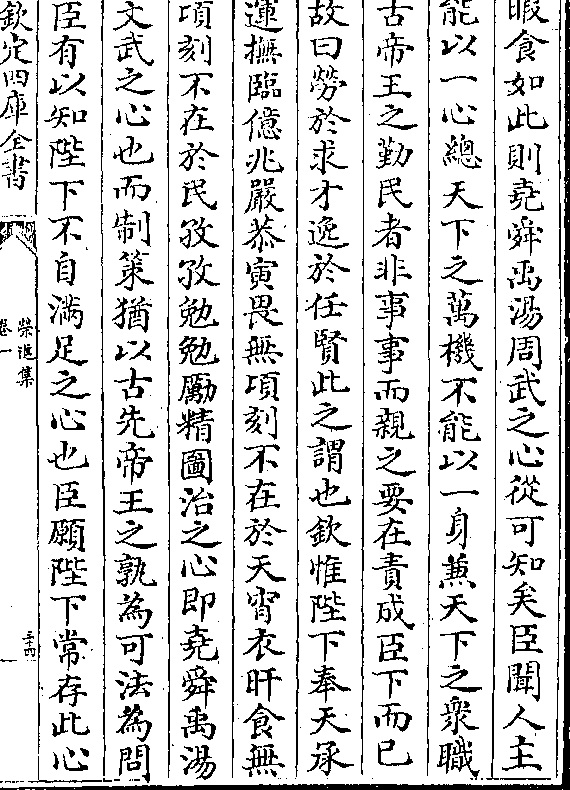 暇食如此則堯舜禹湯周武之心從可知矣臣聞人主
能以一心總天下之萬機不能以一身兼天下之衆職
古帝王之勤民者非事事而親之要在責成臣下而已
故曰勞於求才逸於任賢此之謂也欽惟陛下奉天承
運撫臨億兆嚴恭寅畏無頃刻不在於天宵衣旰食無
頃刻不在於民孜孜勉勉厲精圖治之心即堯舜禹湯
文武之心也而制策猶以古先帝王之孰為可法為問
臣有以知陛下不自滿足之心也臣願陛下常存此心
欽定四庫全書
榮進集
卷一
三十四